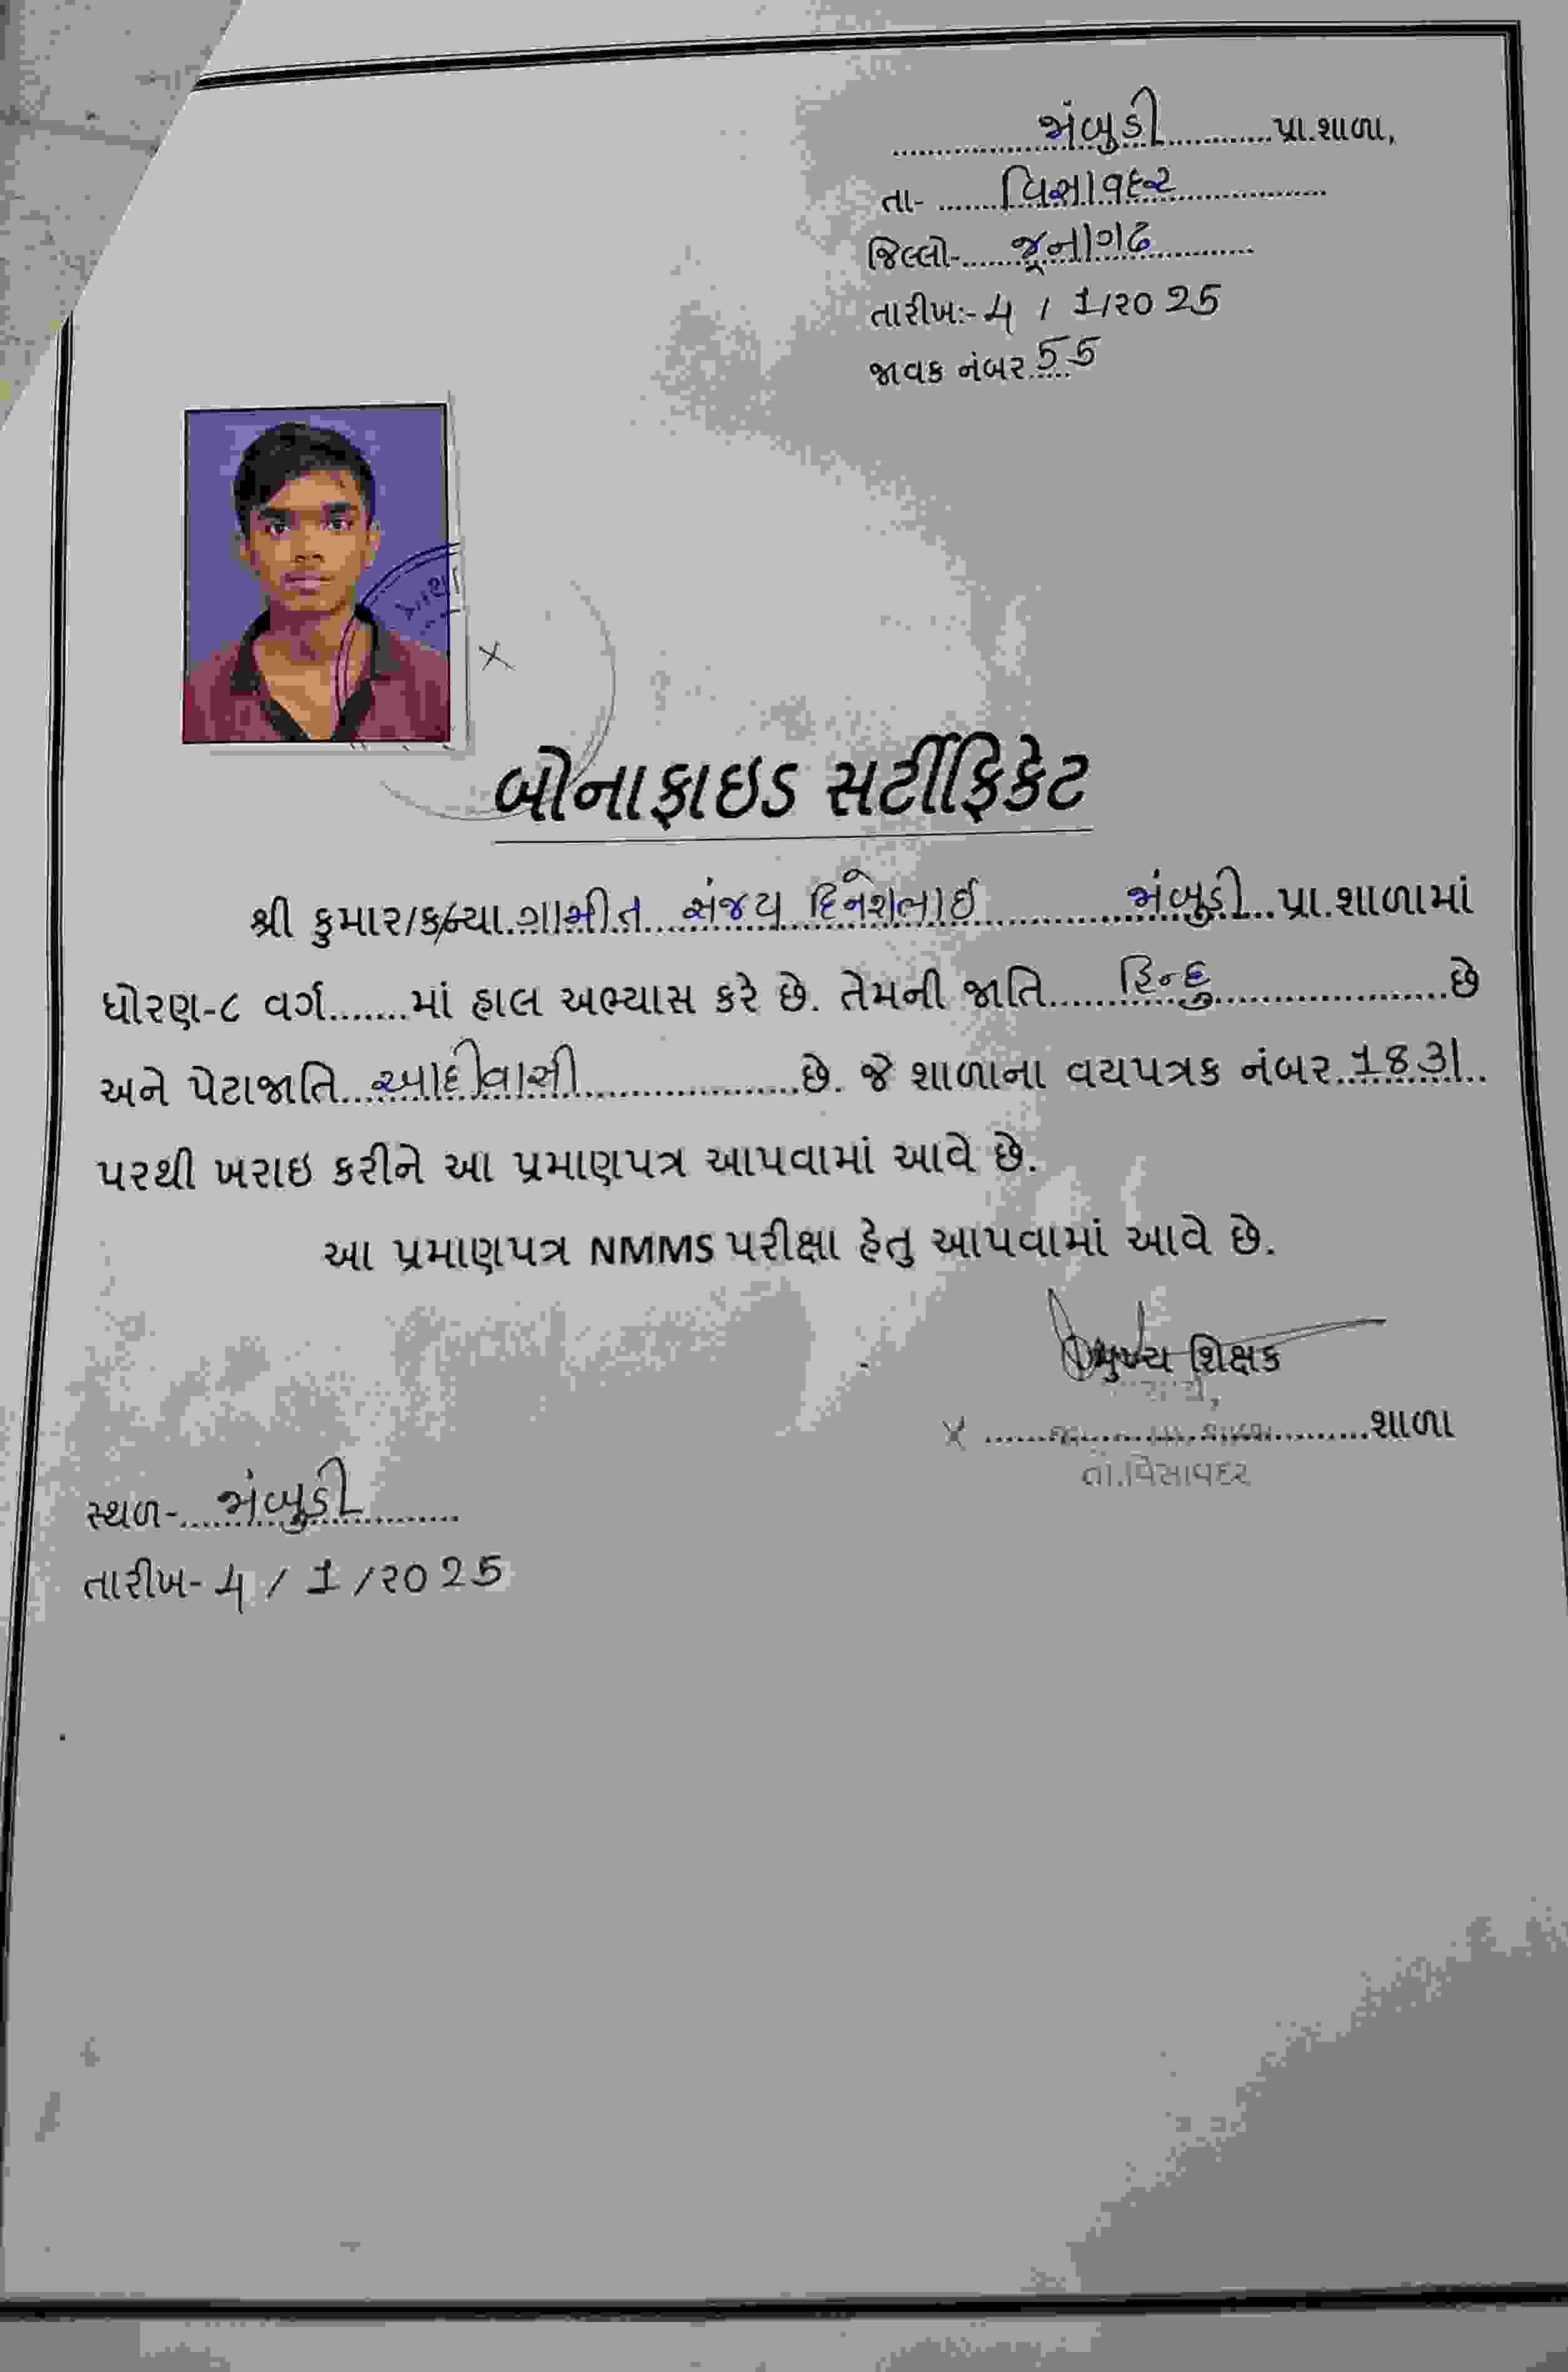 જાંબુડી પ્રા.શાળા,
તા- વિસાવદર
જિલ્લો- જૂનાગઢ
તારીખ:- 4 / 1/૨૦25
જાવક નંબર 55
બોનાફાઇડ સર્ટીફિકેટ
શ્રી કુમાર/કન્યા ગામીત સંજય દિનેશભાઈ જાંબુડી પ્રા.શાળામાં
ધોરણ-૮ વર્ગ.......માં હાલ અભ્યાસ કરે છે. તેમની જાતિ હિન્દુ છે
અને પેટાજાતિ આદીવાસી છે. જે શાળાના વયપત્રક નંબર 1831
પરથી ખરાઇ કરીને આ પ્રમાણપત્ર આપવામાં આવે છે.
આ પ્રમાણપત્ર NMMS પરીક્ષા હેતુ આપવામાં આવે છે.
મુખ્ય શિક્ષક
શાળા
તા.વિસાવદર
સ્થળ- જાંબુડી
તારીખ- 4 / 1 /૨૦25